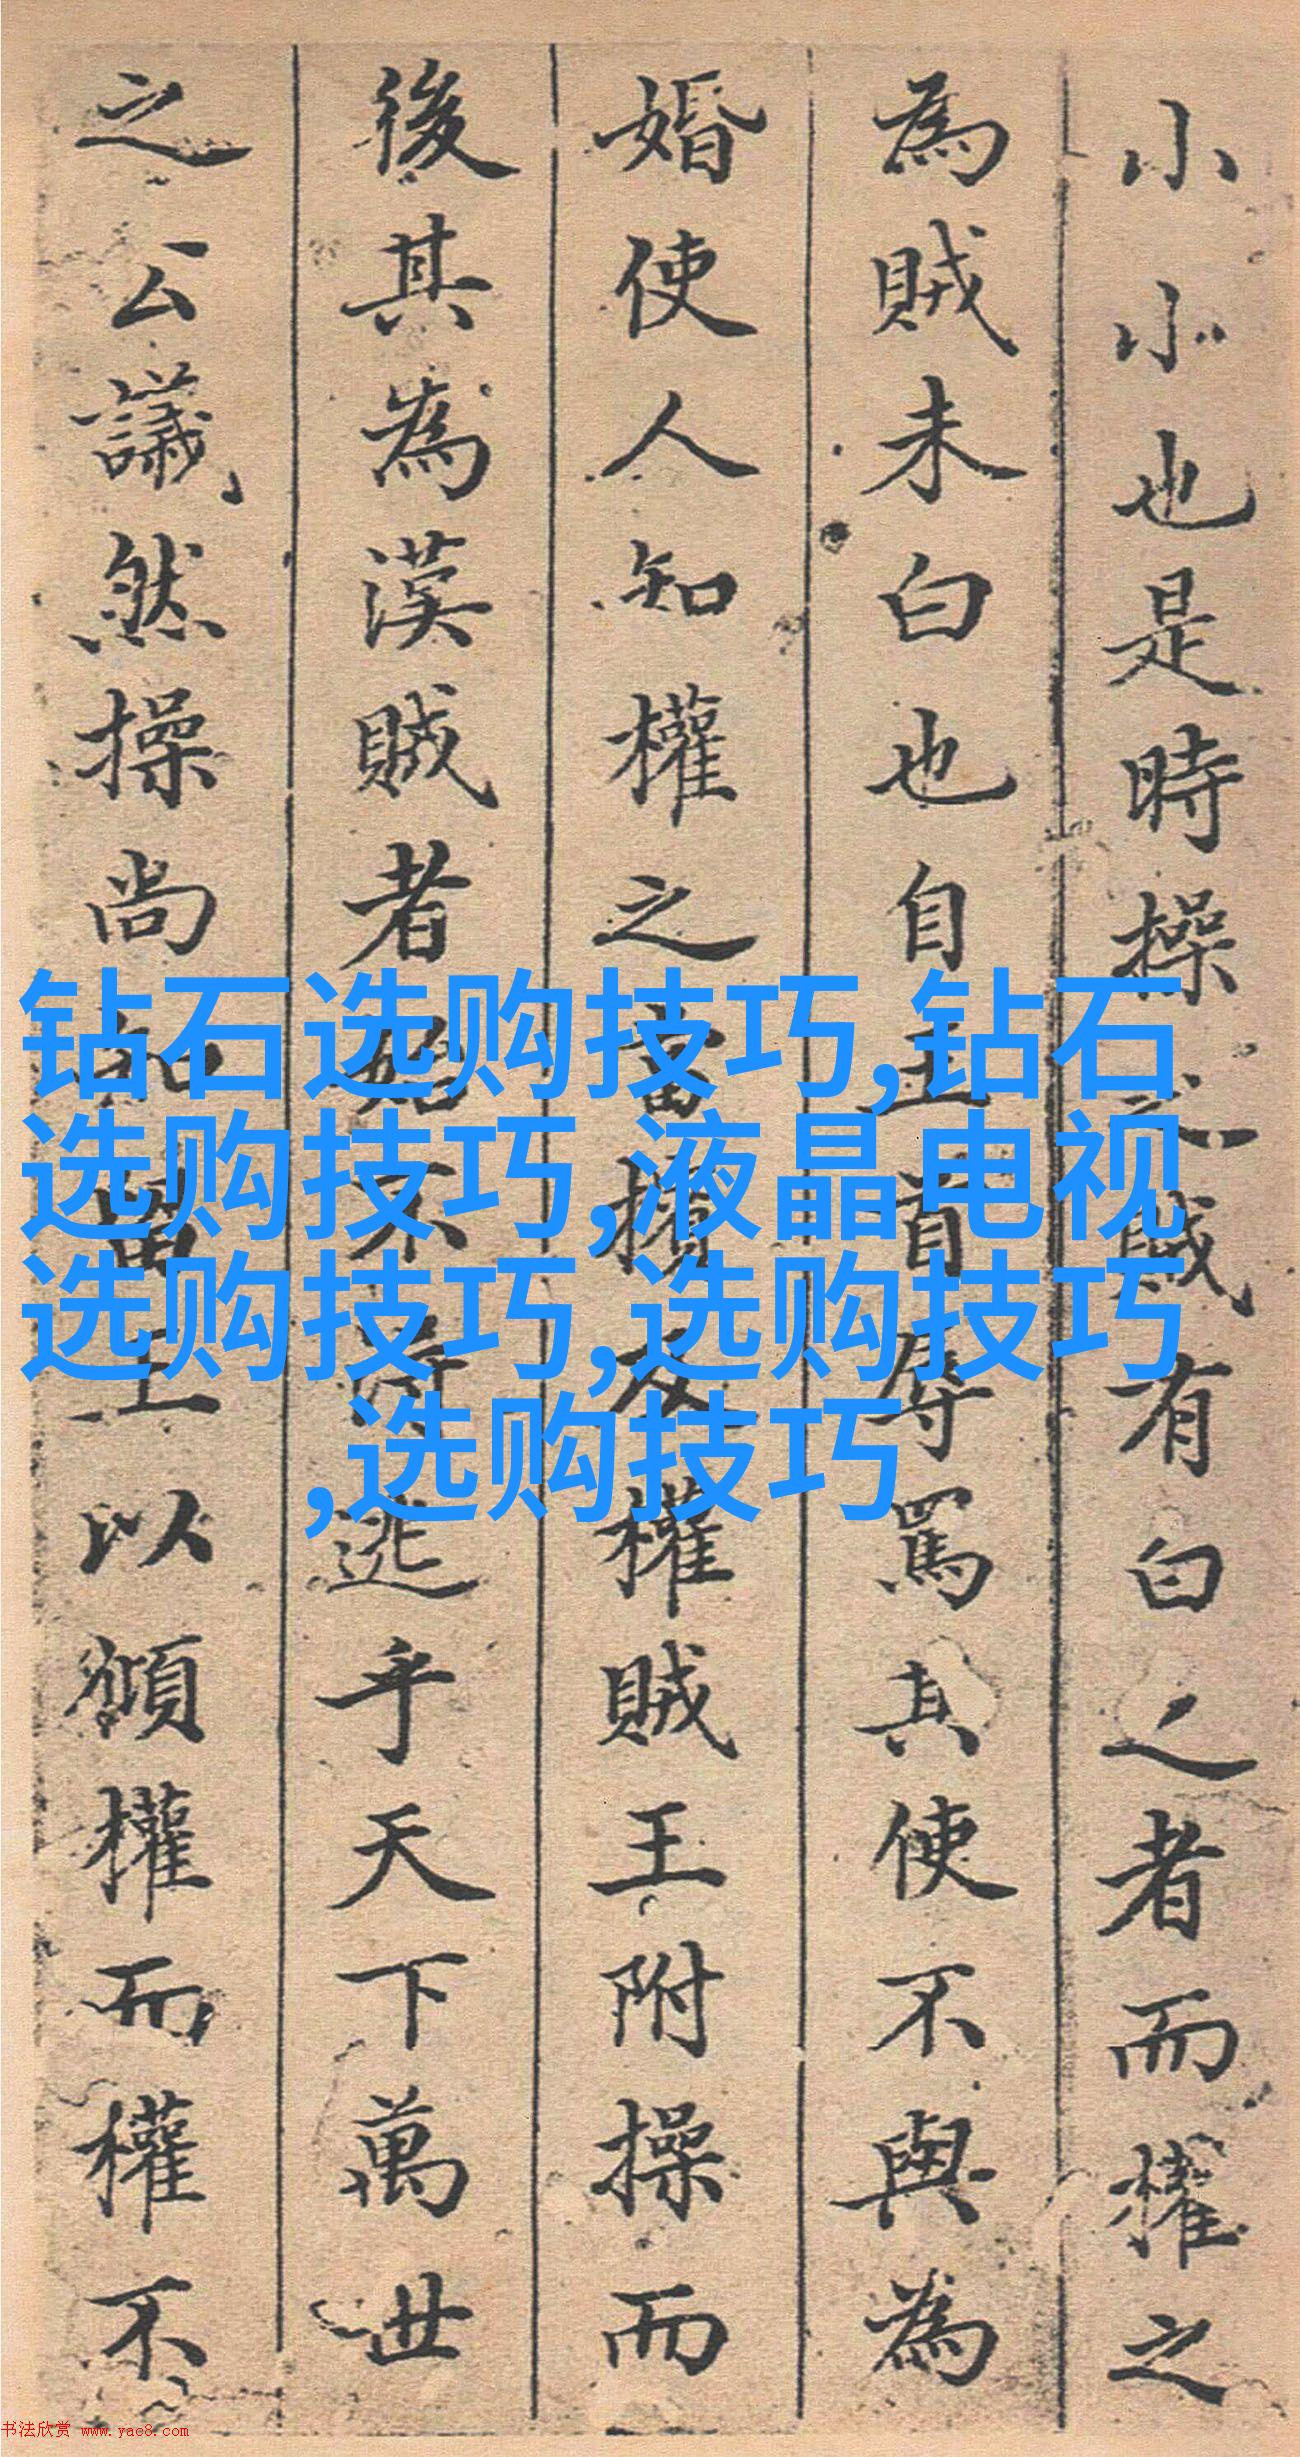 小小也是時操之賊有白之者而權之
為賊未白也自正首辱罵其使不與為
婚使人知權之當擯及權賊王附操而
後其為漢賊者始不得逃乎天下萬世
之公議然操尚知篡上以頒權而權不
钻石选购技巧,钻石
选购技巧,液晶电视
选购技巧,选购技巧
,选购技巧
书法欣赏 www.yac8.com